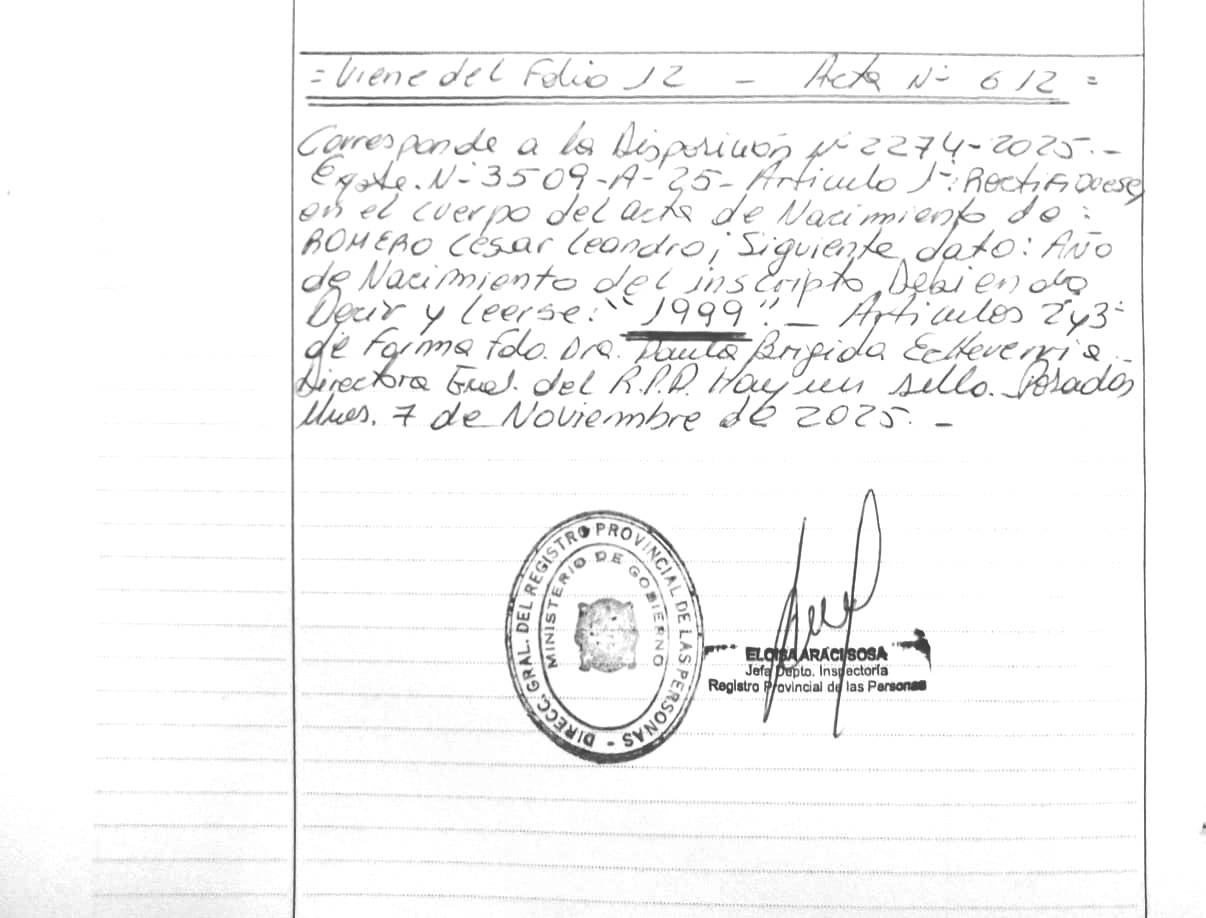 = Viene del Folio 12 - Acta N- 612 =
Corresponde a la Disposición N- 2274-2025.-
Expte. N- 3509-A-25- Artículo 1-: Rectifiquese,
en el cuerpo del acta de Nacimiento de:
ROMERO César Leandro; Siguiente dato: AÑO
de Nacimiento del inscripto Debiendo
Decir y leerse: "1999". - Articulos 2y3-
de Forma Fdo. Dra. Paula Brigida Echeverria -
Directora Gral. del R.P.P. Hay un sello. Posadas
Mnes. 7 de Noviembre de 2025. -
DIRECC. GRAL. DEL REGISTRO PROVINCIAL DE LAS PERSONAS -
MINISTERIO DE GOBIERNO
ELOISA ARACI SOSA
Jefa Depto. Inspectoría
Registro Provincial de las Personas